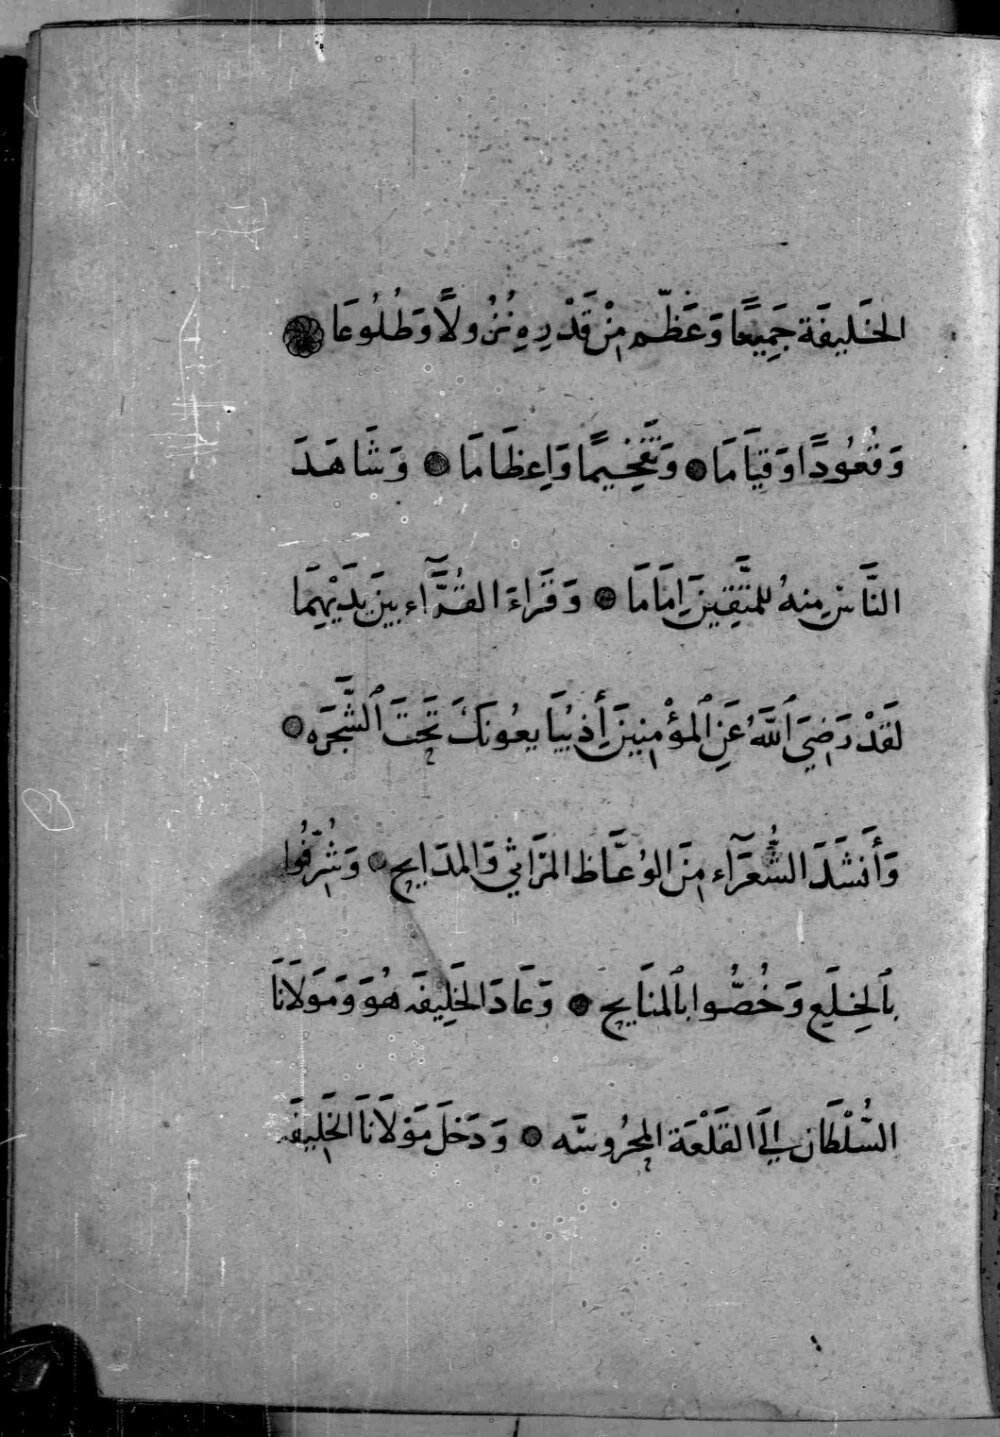 الخَليفَة جَمِيعًا وَعَظَّم مِنْ قَدْرِهِ نُزُولاً وَطُلُوعَا
وَقُعُودًا وَقِيَامَا وَتَفْخِيمًا وَاِعظَامَا وَشَاهَدَ
النَّاسُ مِنهُ للمتَّقِينَ اِمَامَا وَقَرَاءَ القُرَّآء بينَ يدَيْهِمَا
لَقَدْ رَضِيَ ٱللَّهُ عَنِ ٱلمؤْمِنِينَ أِذ يُبَايعُونَكَ تَحْتَ ٱلشَّجَرَه
وَأَنشَدَ الشُّعَرَآء مِنَ الوُعَّاظ المرَاثي وَالمدَايح وَشُرِّفُوا
بٱلخِلَع وَخُصُّوا بٱلمنَايح وَعَادَ الخَلِيفَه هُوَ وَمَولاَنَا
السُّلْطَان إلَى القَلْعَة المحرُوسَه وَدَخَلَ مَوْلاَنَا الخَلِيفَه